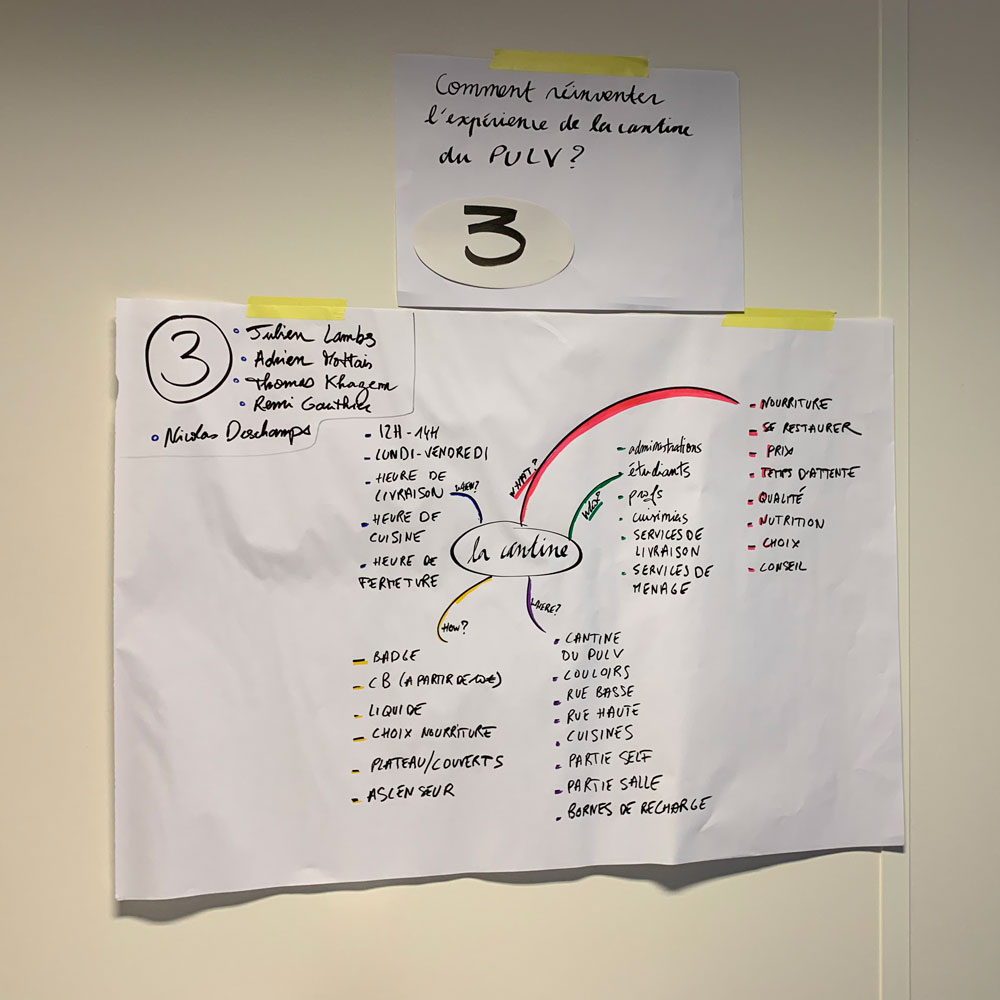 Comment réinventer
l'expérience de la cantine
du PULV?
3
3
Julien Lambs
Adrien
Thomas Khazem
Remi Gauthier
Nicolas Deschamps
- 12H - 14H
- LUNDI-VENDREDI
- HEURE DE
LIVRAISON
- HEURE DE
CUISINE
- HEURE DE
FERMETURE
WHEN?
WHAT?
- NOURRITURE
- SE RESTAURER
- PRIX
- TEMPS D'ATTENTE
- QUALITÉ
- NUTRITION
- CHOIX
- CONSEIL
WHO?
- administrations
étudiants
- profs
- cuisiniers
- SERVICES DE
LIVRAISON
- SERVICES DE
MENAGE
la cantine
HOW?
- BADGE
- CB (A PARTIR DE
- LIQUIDE
- CHOIX NOURRITURE
- PLATEAU/COUVERTS
- ASCENSEUR
WHERE?
- CANTINE
DU PULV
- COULOIRS
- RUE BASSE
- RUE HAUTE
- CUISINES
- PARTIE SELF
- PARTIE SALLE
- BORNES DE RECHARGE